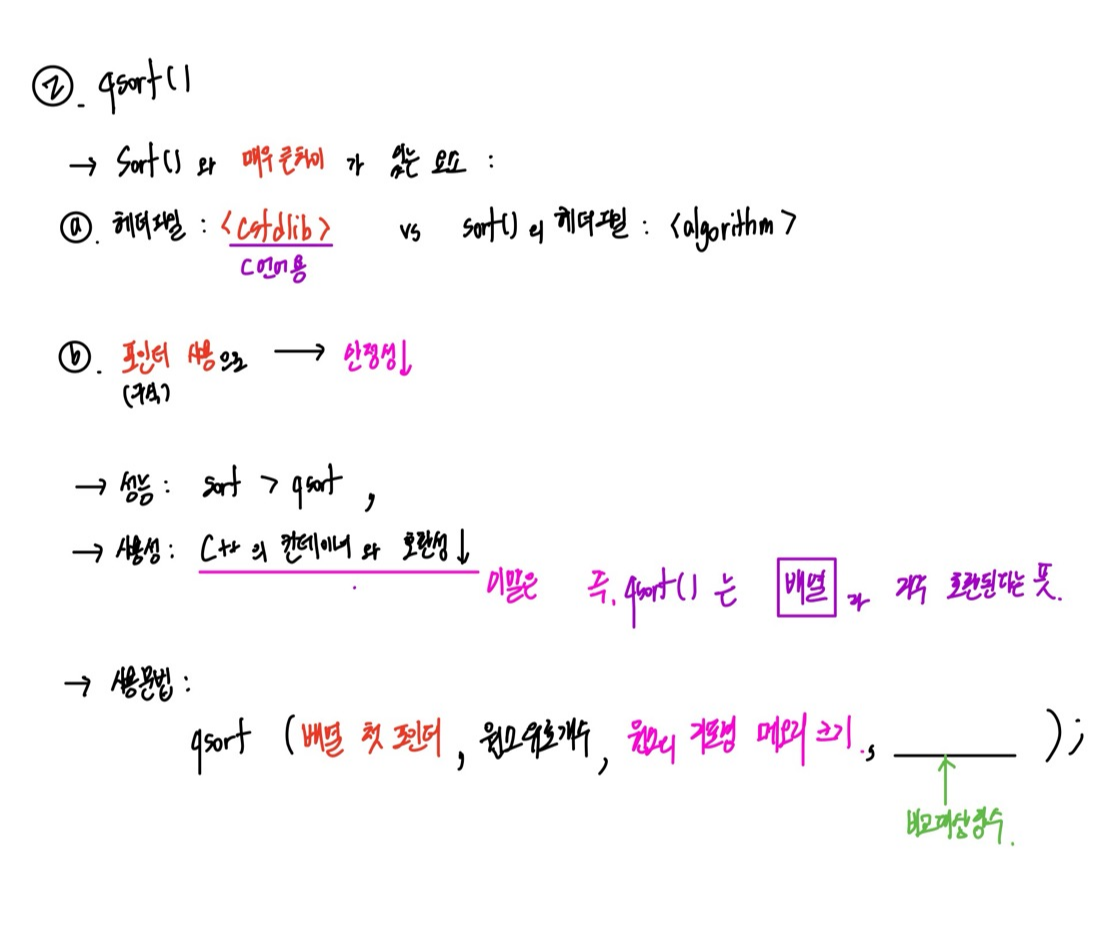 ②. qsort()
→ Sort()와 매우 큰 차이가 있는 요소 :
ⓐ. 헤더파일 : <cstdlib> vs sort()의 헤더파일 : <algorithm>
C언어용
ⓑ. 포인터 사용으로 → 안정성↓
(규칙)
→ 성능 : sort > qsort ,
→ 사용성 : C++의 컨테이너와 호환성↓
이말은 즉, qsort()는 배열과 호환된다는 뜻.
→ 사용문법 :
qsort (배열 첫 포인터, 원소 유효개수, 원소의 자료형 메모리 크기., ______ );
↑
비교대상함수.